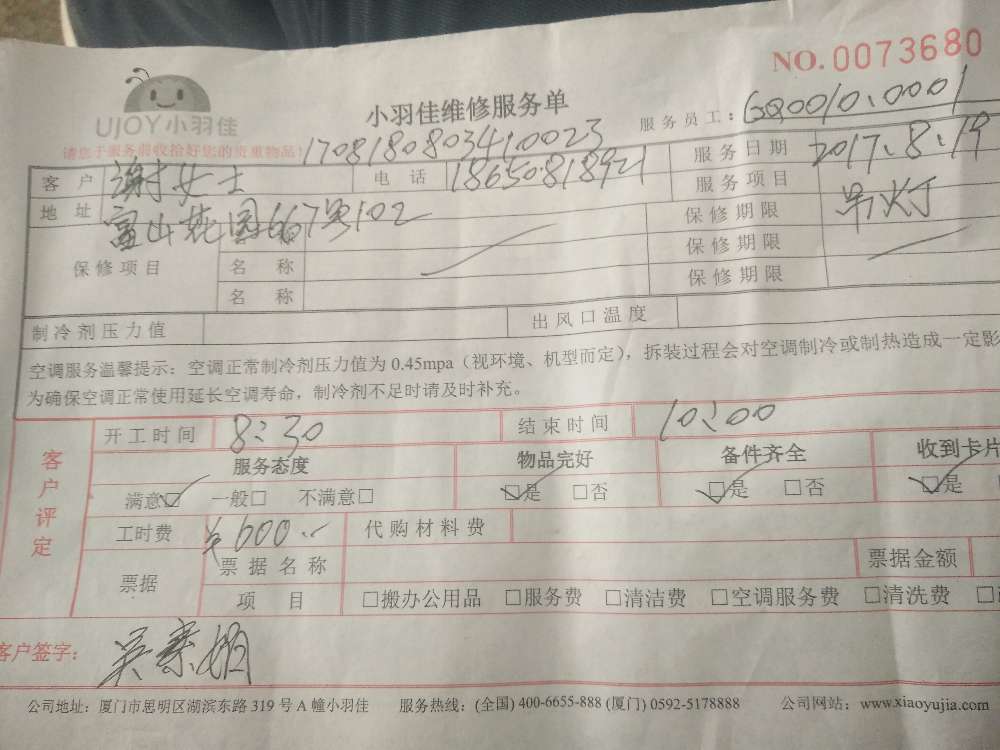 NO.0073680
UJOY小羽佳
小羽佳维修服务单
服务员工：GQ0010.0001
请您于服务前收拾好您的贵重物品！
170818080341.0023
服务日期 2017.8.19
客户 谢女士 电话 18650818921
服务项目 吊灯
地址 富山花园667号102
保修期限
保修项目 名称 保修期限
名称 保修期限
制冷剂压力值 出风口温度
空调服务温馨提示：空调正常制冷剂压力值为 0.45mpa（视环境、机型而定），拆装过程会对空调制冷或制热造成一定影
为确保空调正常使用延长空调寿命，制冷剂不足时请及时补充。
客户评定
开工时间 8:30 结束时间 10:00
服务态度 物品完好 备件齐全 收到卡片
满意☑ 一般□ 不满意□ ☑是 □否 ☑是 □否 ☑是
工时费 ￥600.- 代购材料费
票据 票据名称 票据金额
项目 □搬办公用品 □服务费 □清洁费 □空调服务费 □清洗费
客户签字：
公司地址：厦门市思明区湖滨东路 319 号 A 幢小羽佳 服务热线：(全国) 400-6655-888 (厦门) 0592-5178888 公司网站：www.xiaoyujia.com